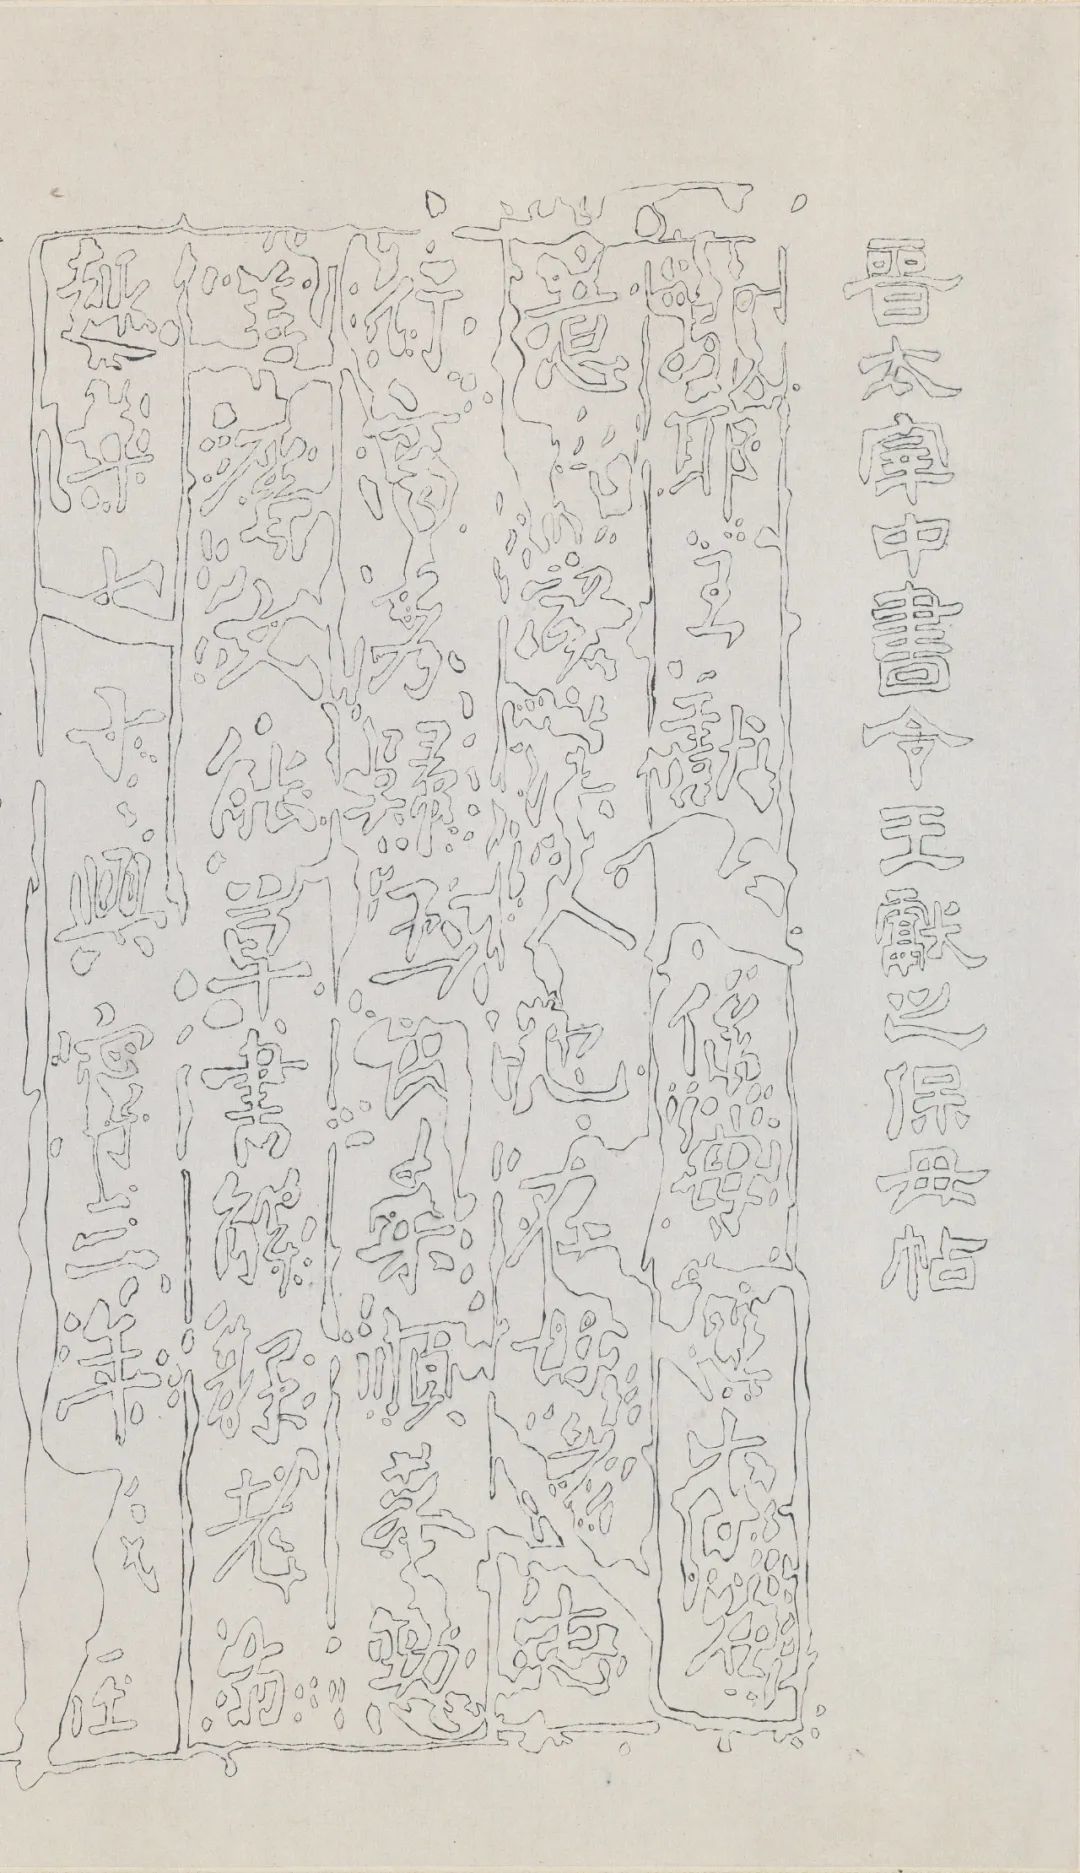 晉太宰中書令王獻之保母帖
郎耶王獻之保母姓李名
意如廣漢人也在母家志
行高秀歸王氏柔順恭懃
善屬文能草書解釋老旨
趣年七十興寧三年歲在